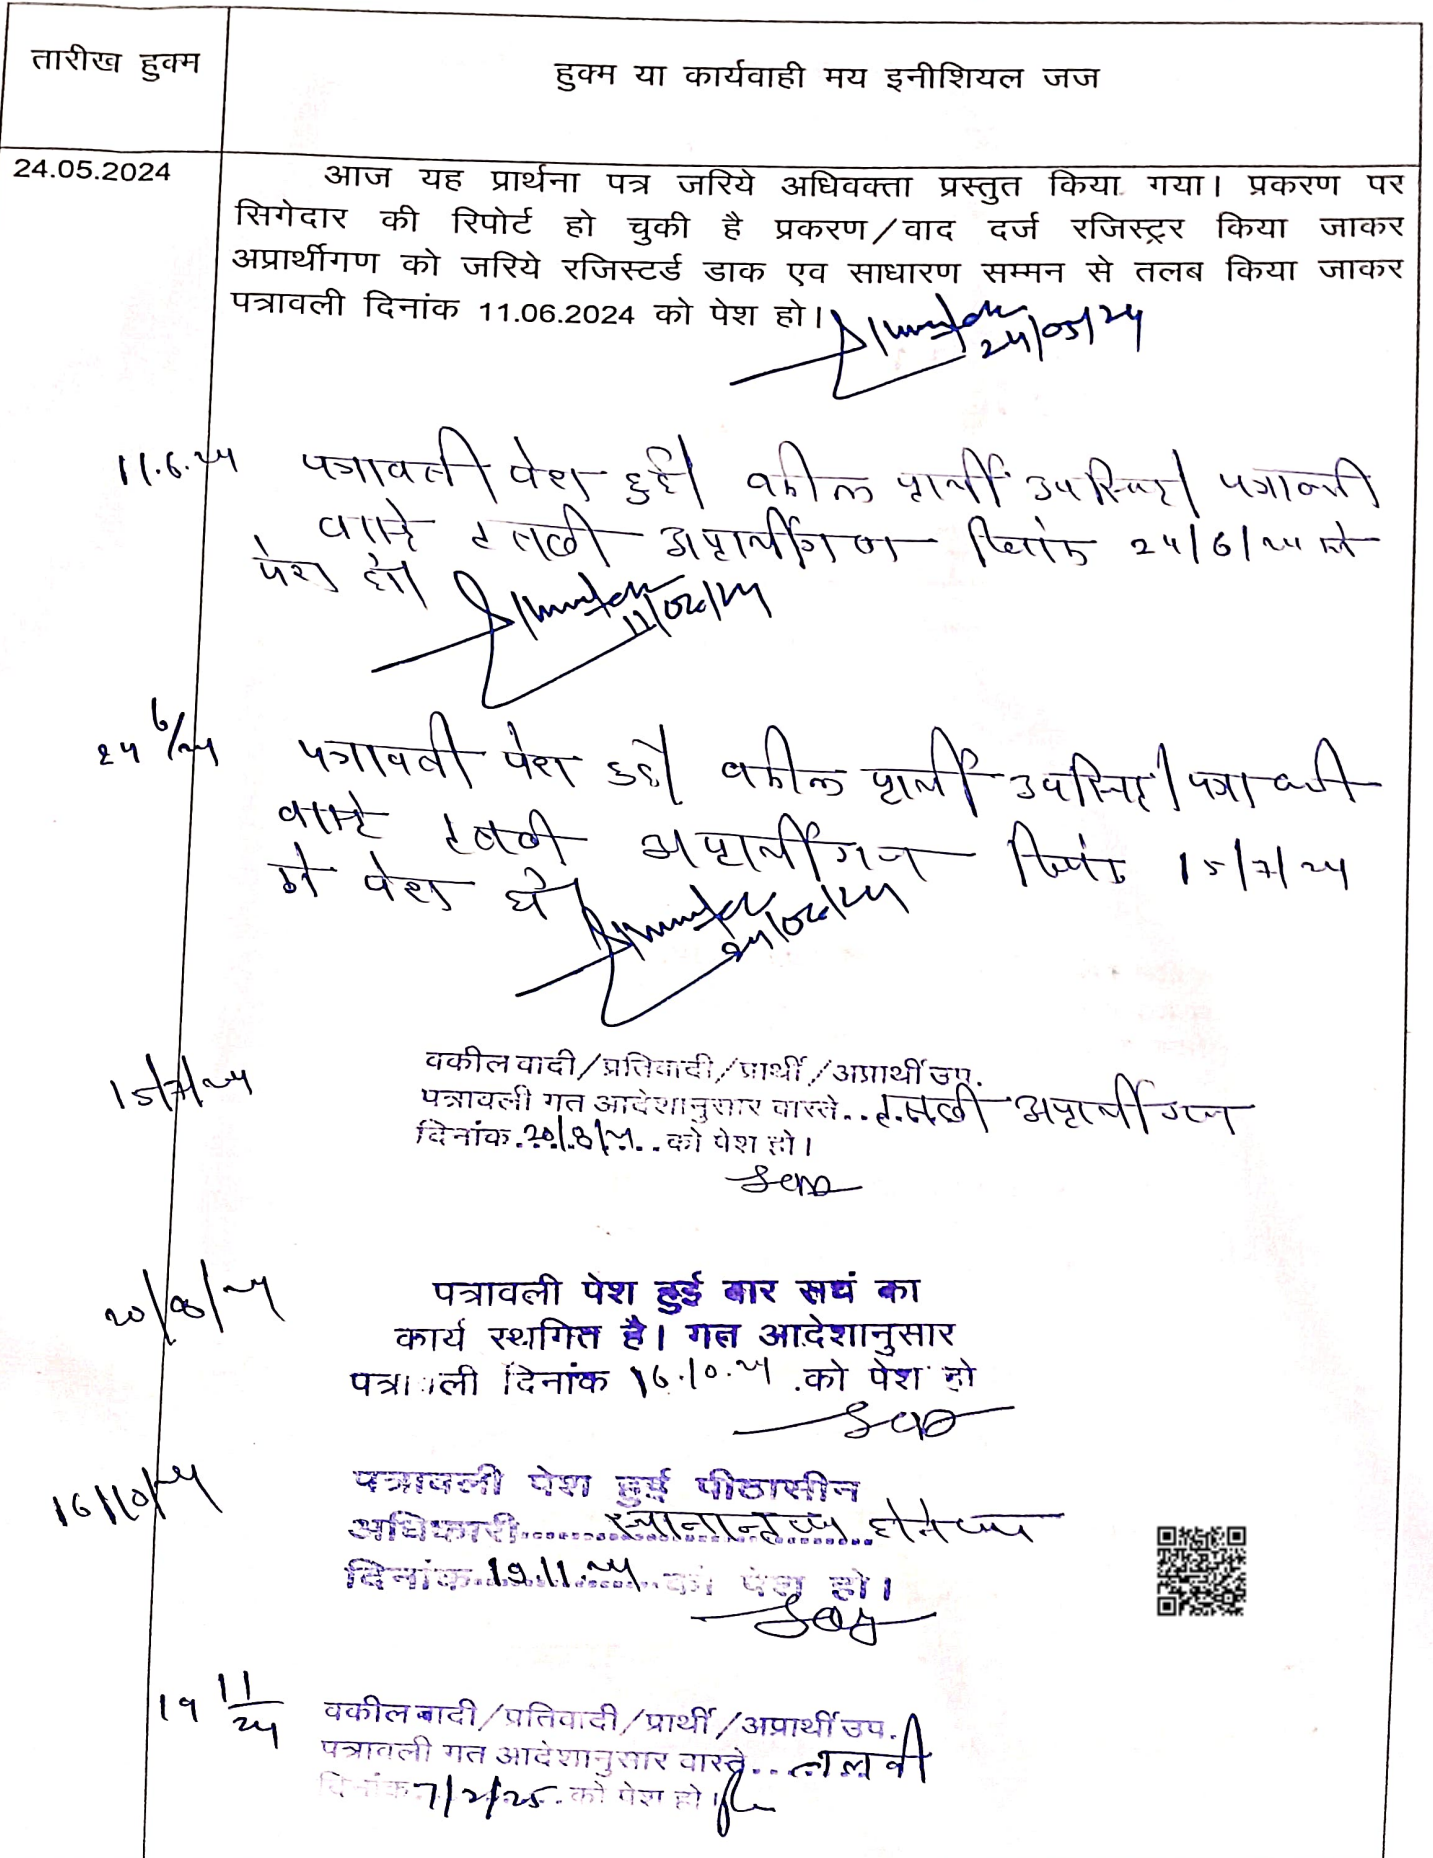 तारीख हुक्म
हुक्म या कार्यवाही मय इनीशियल जज
24.05.2024
आज यह प्रार्थना पत्र जरिये अधिवक्ता प्रस्तुत किया गया। प्रकरण पर
सिगेदार की रिपोर्ट हो चुकी है प्रकरण/वाद दर्ज रजिस्ट्रर किया जाकर
अप्रार्थीगण को जरिये रजिस्टर्ड डाक एव साधारण सम्मन से तलब किया जाकर
पत्रावली दिनांक 11.06.2024 को पेश हो।
24/05/24
11.6.24 पत्रावली पेश हुई। वकील प्रार्थी उपस्थित। पत्रावली
वास्ते तलबी अप्रार्थीगण दिनांक 24/6/24 को
पेश हो।
11/06/24
24 6/24 पत्रावली पेश हुई। वकील प्रार्थी उपस्थित। पत्रावली
वास्ते तलबी अप्रार्थीगण दिनांक 15/7/24
को पेश हो।
24/06/24
15/7/24 वकील वादी/प्रतिवादी/प्रार्थी/अप्रार्थी उप.
पत्रावली गत आदेशानुसार वास्ते.. तलबी अप्रार्थीगण
दिनांक.20/8/24.. को पेश हो।
20/8/24 पत्रावली पेश हुई बार सघं का
कार्य स्थगित है। गत आदेशानुसार
पत्रावली दिनांक 16.10.24 .को पेश हो
16/10/24 पत्रावली पेश हुई पीठासीन
अधिकारी...... स्थानान्तरण होने पर
दिनांक..19.11.24.. को पेश हो।
19 11/24 वकील वादी/प्रतिवादी/प्रार्थी/अप्रार्थी उप.
पत्रावली गत आदेशानुसार वास्ते.. तलबी
दिनांक 7/2/25. को पेश हो।